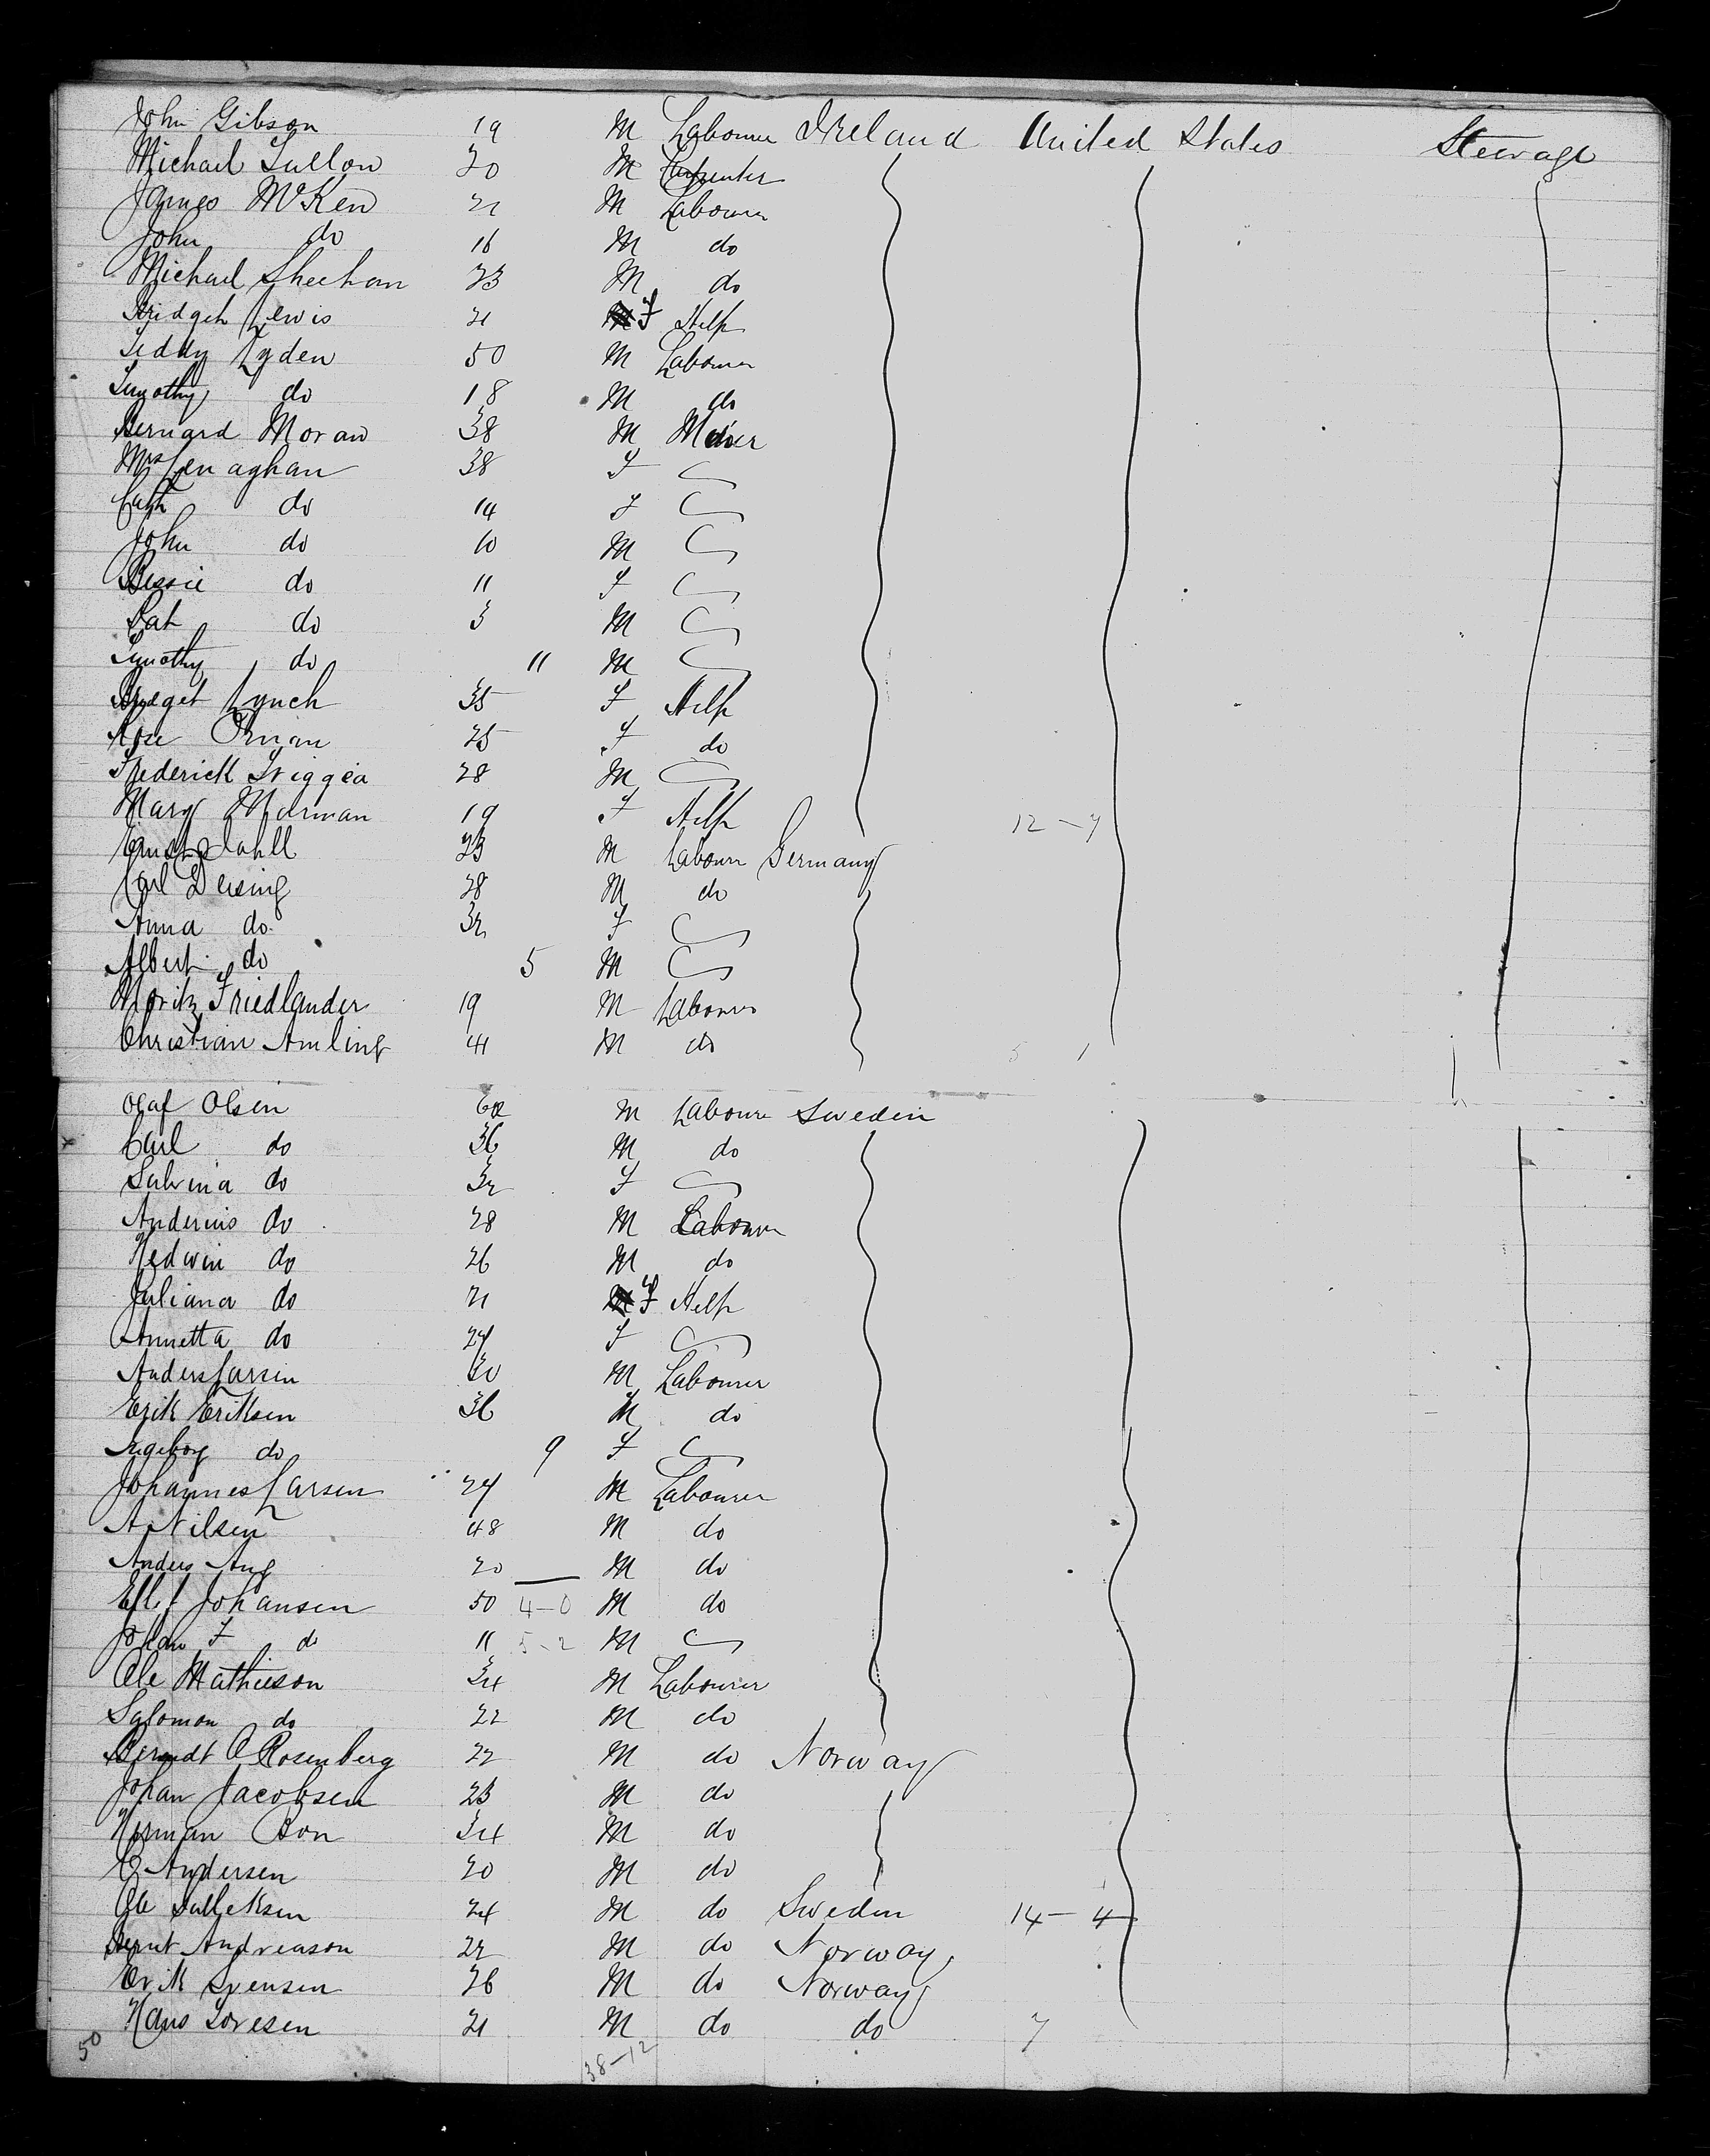 John Gibson 19 M Labourer Ireland United States Steerage
Michael 20 M Carpenter
James McKen 21 M Labourer
John do 16 M do
Michael Sheehan 23 M do
Bridget Lewis 21 F Help
Teddy Lyden 50 M Labourer
Timothy do 18 M do
Bernard Moran 38 M
Mrs Lenaghan 38 F
Cath do 14 F
John do 10 M
Bessie do 11 F
Pat do 3 M
Timothy do 11 M
Bridget Lynch 35 F Help
Rose 25 F do
Frederick 28 M
Mary Morman 19 F Help 12-7
Ernst 23 M Labourer Germany
Carl Deising 28 M do
Anna do 32 F
Albert do 5 M
Moritz Friedlander 19 M Labourer
Christian Amling 41 M do 5 1
Olaf Olsen M Labourer Sweden
Carl do 36 M do
do 32 F
do 28 M Labourer
Hedwin do 26 M do
Juliana do 21 F Help
Annetta do 24 F
Anders Larsen 30 M Labourer
Erik Eriksen 36 M do
Ingeborg do 9 F
Johannes Larsen 24 M Labourer
A Nilsen 48 M do
Anders Aug 20 M do
Johansen 50 4-0 M do
Johan F do 11 5-2 M
Ole Mathieson 34 M Labourer
Salomon do 22 M do
Berndt O Rosenberg 22 M do Norway
Johan Jacobsen 23 M do
Herman Bon 34 M do
E Andersen 20 M do
Ole 24 M do Sweden 14-4
Bernt Andreason 22 M do Norway
Erik Svensen 26 M do Norway
Hans Toresen 21 M do do 7
50 38-12